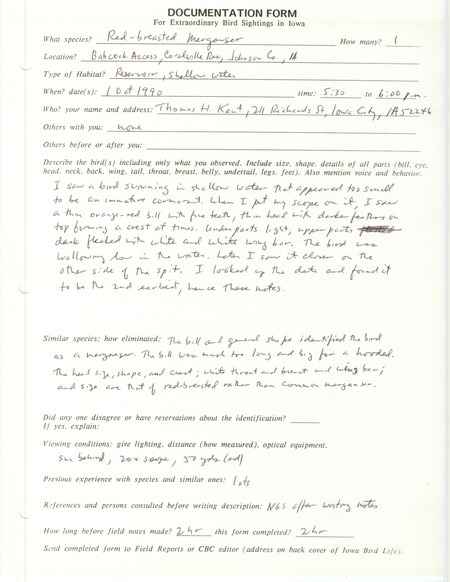 DOCUMENTATION FORM
For Extraordinary Bird Sightings in Iowa
What species? Red-breasted Merganser How many? 1
Location? Babcock Access, Coralville Res, Johnson Co., IA
Type of Habitat? Reservoir, shallow water
When? date(s): 1 Oct 1990 time: 5:30 to 6:00 p.m.
Who? your name and address: Thomas H. Kent, 211 Richards St, Iowa City, IA 52246
Others with you: none
Others before or after you:
Describe the bird(s) including only what you observed. Include size, shape, details of all parts (bill, eye,
head, neck, back, wing, tail, throat, breast, belly, undertail, legs, feet). Also mention voice and behavior.
I saw a bird swimming in shallow water that appeared too small
to be an immature cormorant. When I put my scope on it, I saw
a thin orange-red bill with fine teeth, thin head with darker feathers on
top forming a crest at times. Underparts light, upper parts
dark flecked with white and white wing bar. The bird was
wallowing low in the water. Later I saw it closer on the
other side of the spit. I looked up the date and found it
to be the 2nd earliest, hence these notes.
Similar species; how eliminated: The bill and general shape identified the bird
as a merganser. The bill was much too long and big for a hooded.
The head size, shape, and crest; white throat and breast and wing bar;
and size are that of red-breasted rather than common merganser.
Did any one disagree or have reservations about the identification?
If yes, explain:
Viewing conditions: give lighting, distance (how measured), optical equipment.
sun behind, 20x scope, 50 yds (est)
Previous experience with species and similar ones: lots
References and persons consulted before writing description: NGS after writing notes
How long before field notes made? 2 hr this form completed? 2 hr
Send completed form to Field Reports or CBC editor (address on back cover of Iowa Bird Life).